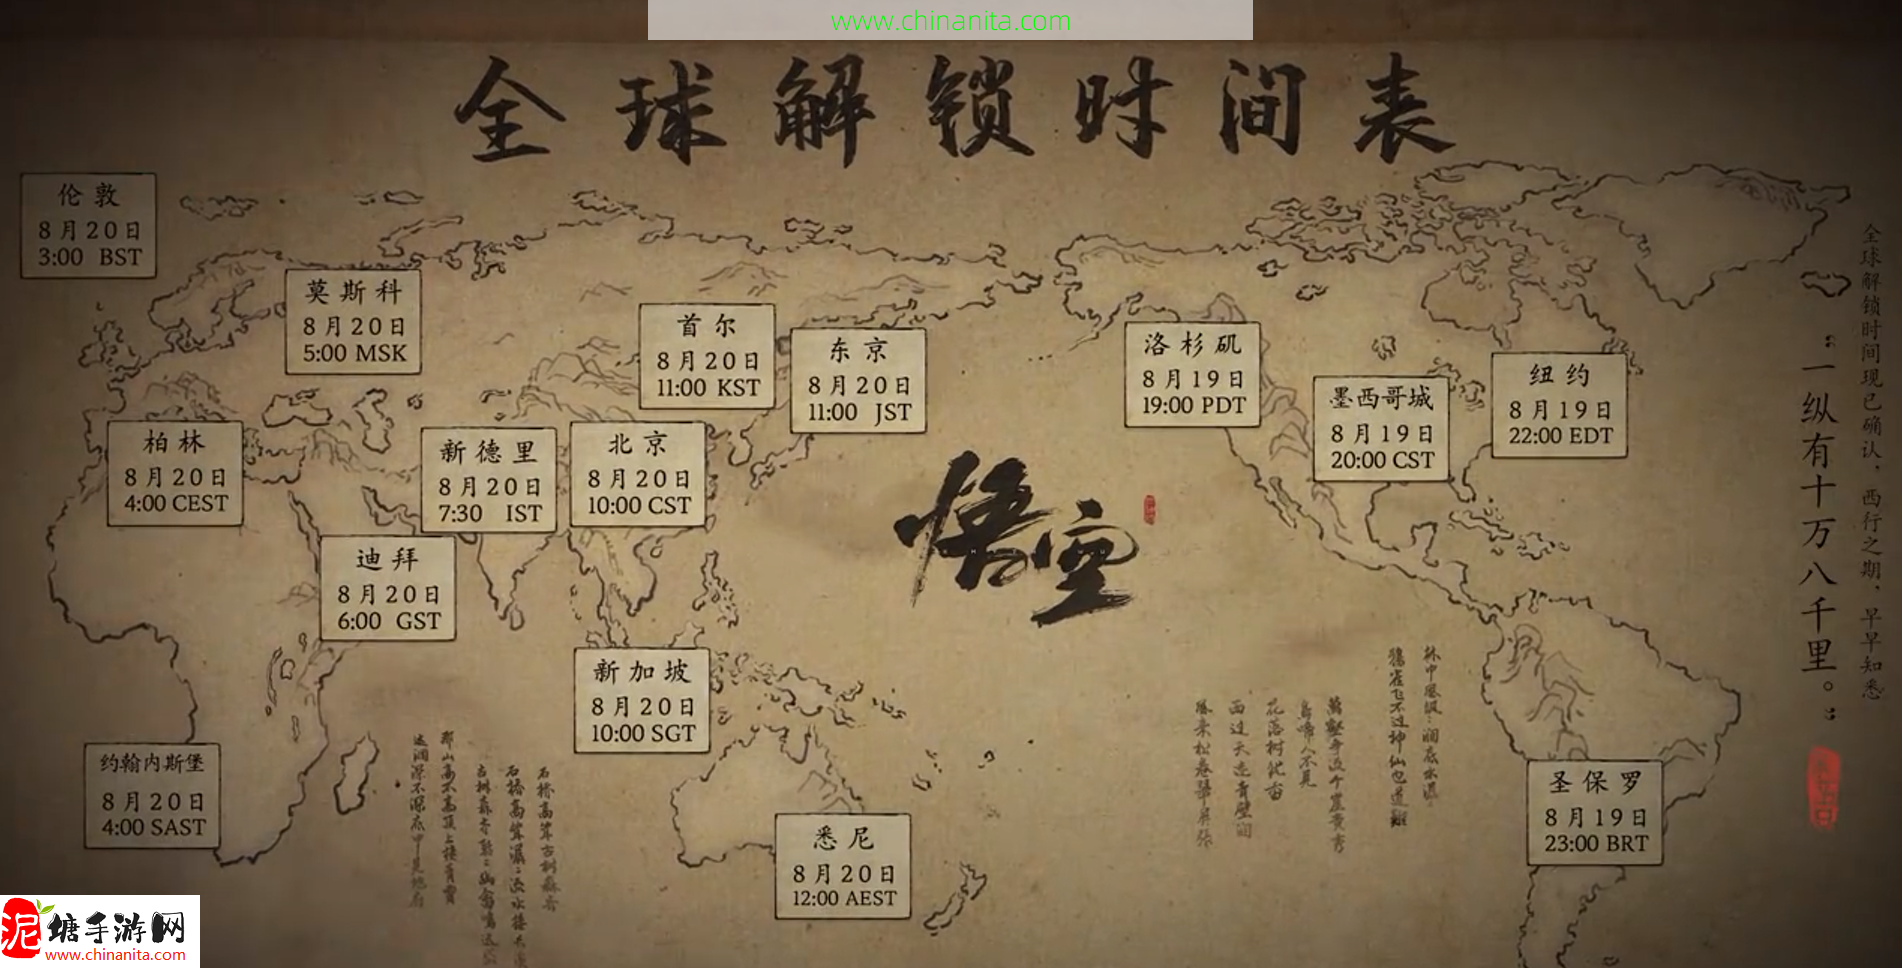 www.chinanita.com
全球解锁时间表
伦敦
8月20日
3:00 BST
莫斯科
8月20日
5:00 MSK
首尔
8月20日
11:00 KST
东京
8月20日
11:00 JST
洛杉矶
8月19日
19:00 PDT
墨西哥城
8月19日
20:00 CST
纽约
8月19日
22:00 EDT
柏林
8月20日
4:00 CEST
新德里
8月20日
7:30 IST
北京
8月20日
10:00 CST
迪拜
8月20日
6:00 GST
悟空
新加坡
8月20日
10:00 SGT
约翰内斯堡
8月20日
4:00 SAST
悉尼
8月20日
12:00 AEST
圣保罗
8月19日
23:00 BRT
全球解锁时间现已确认，西行之期，早早知悉
“一纵有十万八千里。”
泥塘手游网
www.chinanita.com